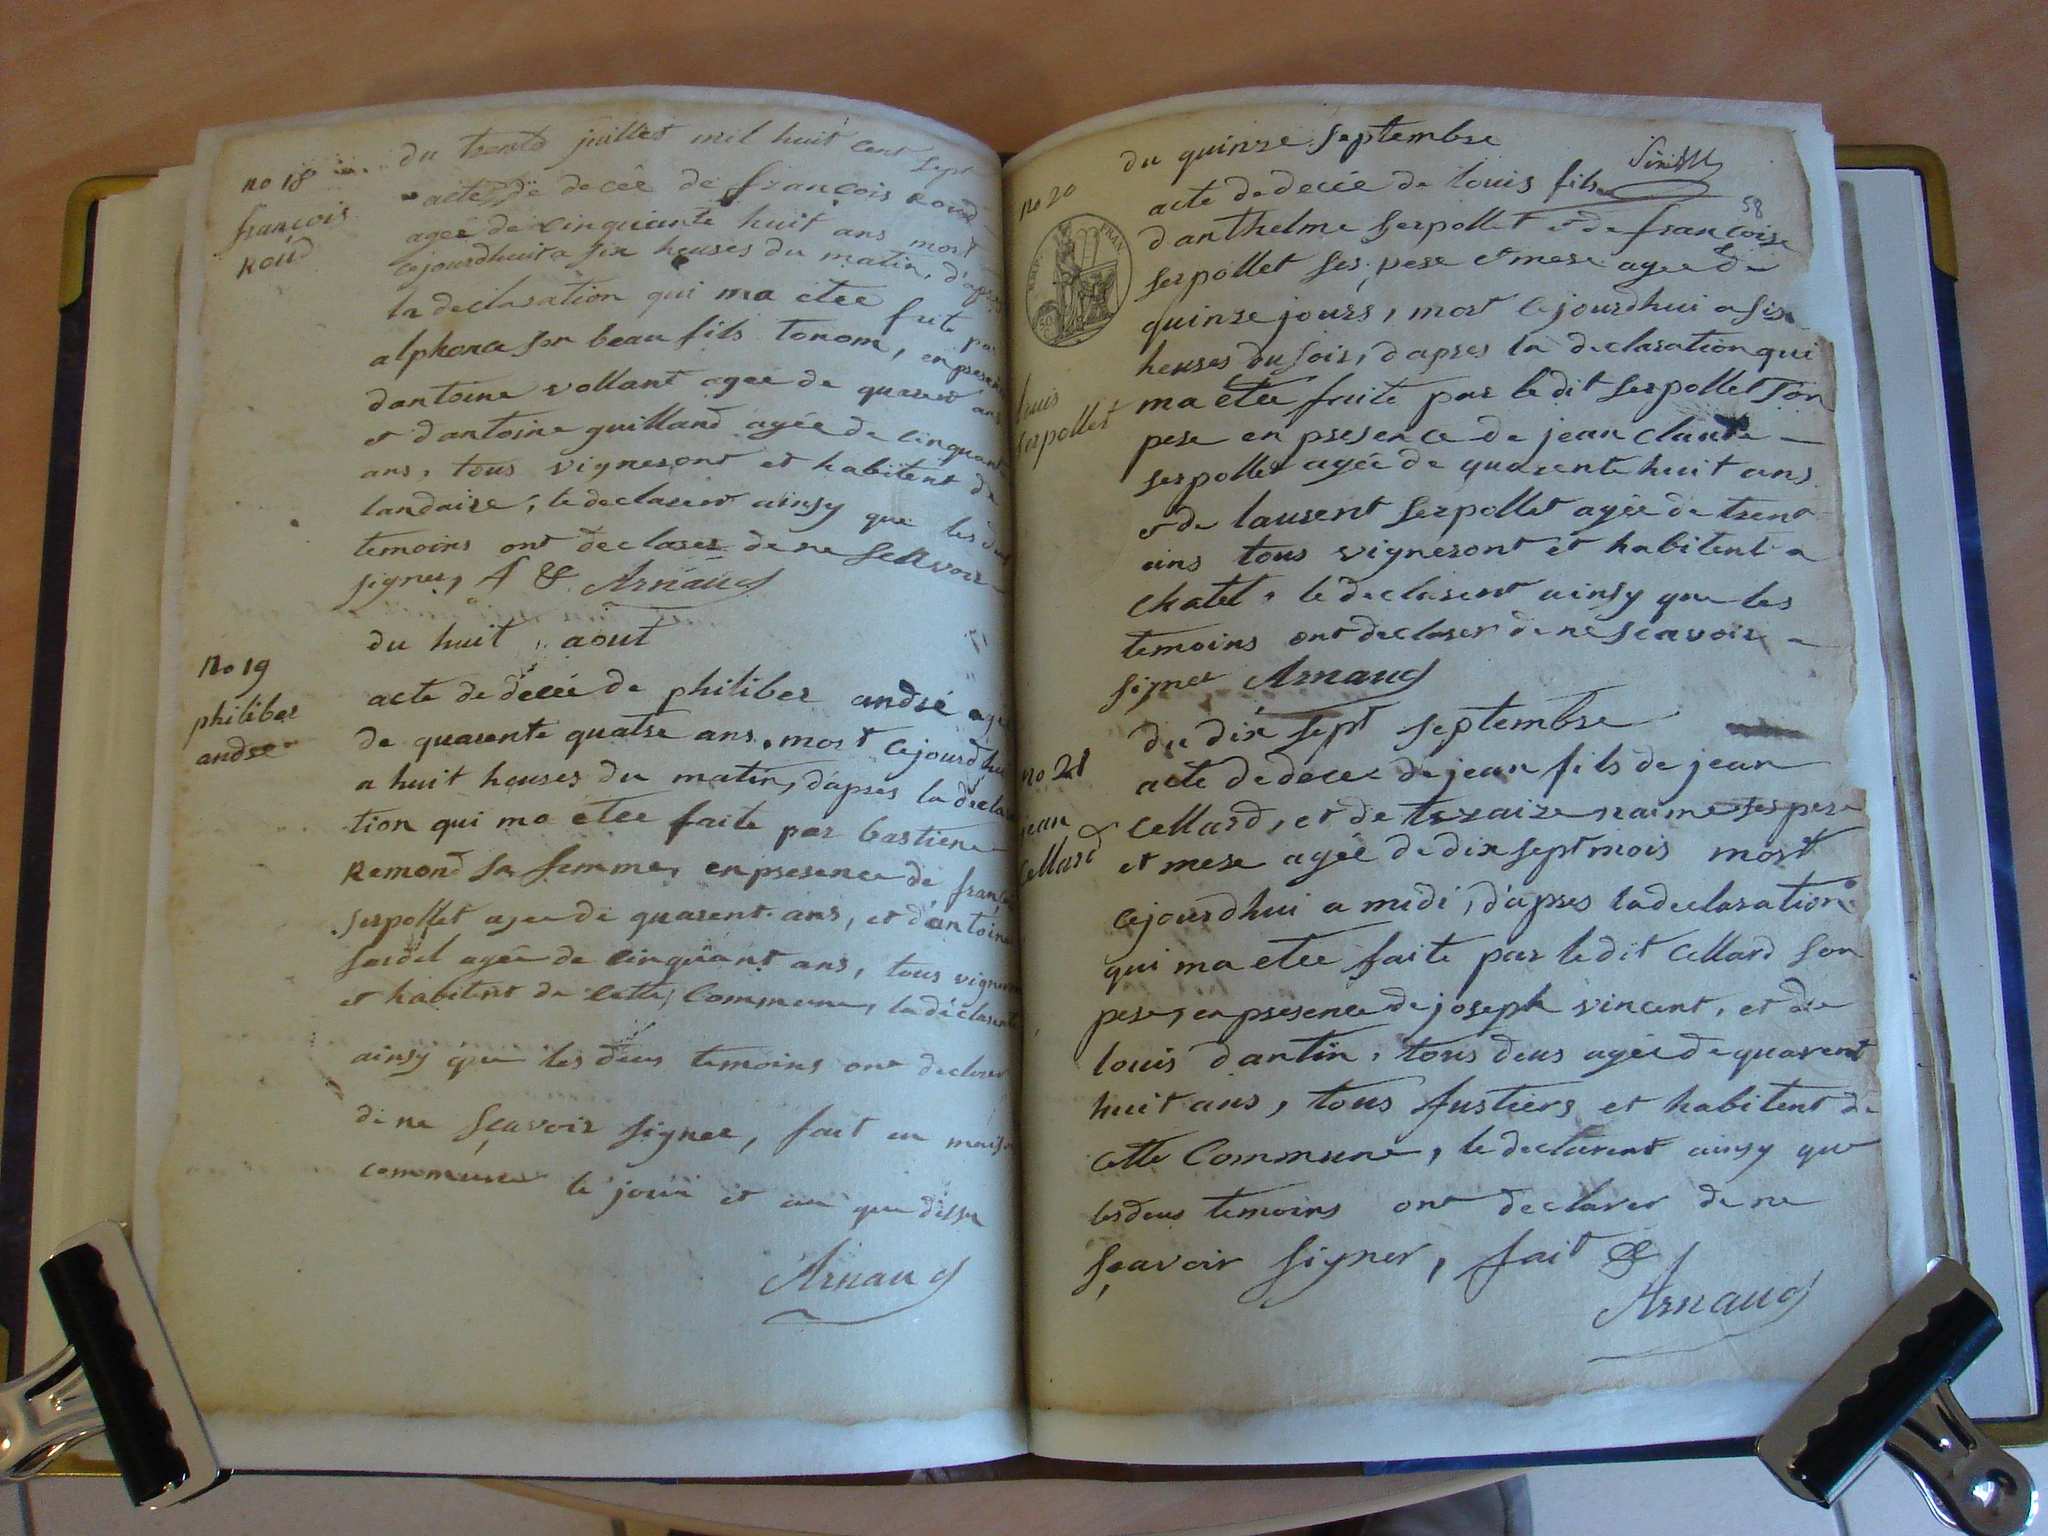 no 18
françois
Roud
du trente juillet mil huit cent sept
acte de decée de françois Roud
agée de cinquante huit ans mort
cejourdhuit a six heures du matin, d'apres
la declaration qui ma etee faite par
alphonce son beau fils tonom, en presen
dantoine vollant agee de quarent ans
et d'antoine guilland agée de cinquante
ans, tous vigneront et habitent de
landaize, le declarent ainsy que les deus
temoins ont declarer de ne scavoir
signer, f & Arnaud
no 19
philiber
andre
du huit aout
acte de decée de philiber andré agé
de quarente quatre ans mort cejourdhui
a huit heures du matin, d'apres la decla
tion qui ma etee faite par bastiene
Remond sa femme, en presence de françois
serpollet agee de quarent ans, et d'antoine
sardel agée de cinquant ans, tous vigneron
et habitent de cette Commune, la déclarente
ainsy que les deus temoins ont declarer
de ne sçavoir signer, fait en maison
commune le jour et an que dessu
Arnaud
58
no 20
EMP. FRAN
louis
serpollet
du quinze septembre
acte de decée de louis fils
danthelme serpollet et de françoise
serpollet ses pere et mere agee de
quinze jours, mort cejourdhui a six
heures du soir, dapres la declaration qui
ma etee faite par le dit serpollet son
pere en presence de jean claude
serpollet agée de quarente huit ans
et de laurent serpollet agée de trent
ans tous vigneront et habitent a
chatel, le declarent ainsy que les
temoins ont declarer de ne scavoir
signer Arnaud
no 21
jean
Cellard
du dix sept septembre
acte de decee de jean fils de jean
Cellard, et de teraize naime ses pere
et mere agée de dix sept mois mort
cejourdhui a midi, d'apres la declaration
qui ma etee faite par le dit Cellard son
pere, en presence de joseph vincent, et de
louis dantin, tous deus agée de quarent
huit ans, tous fustiers et habitent de
cette Commune, le declarent ainsy que
les deus temoins ont declarer de ne
sçavoir signer, fait &
Arnaud